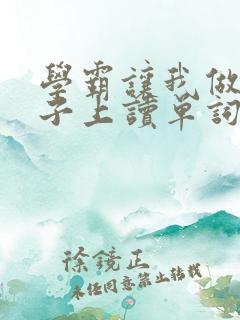 學霸讓我做
子上讀單詞
徐鏡正
未经同意禁止转载